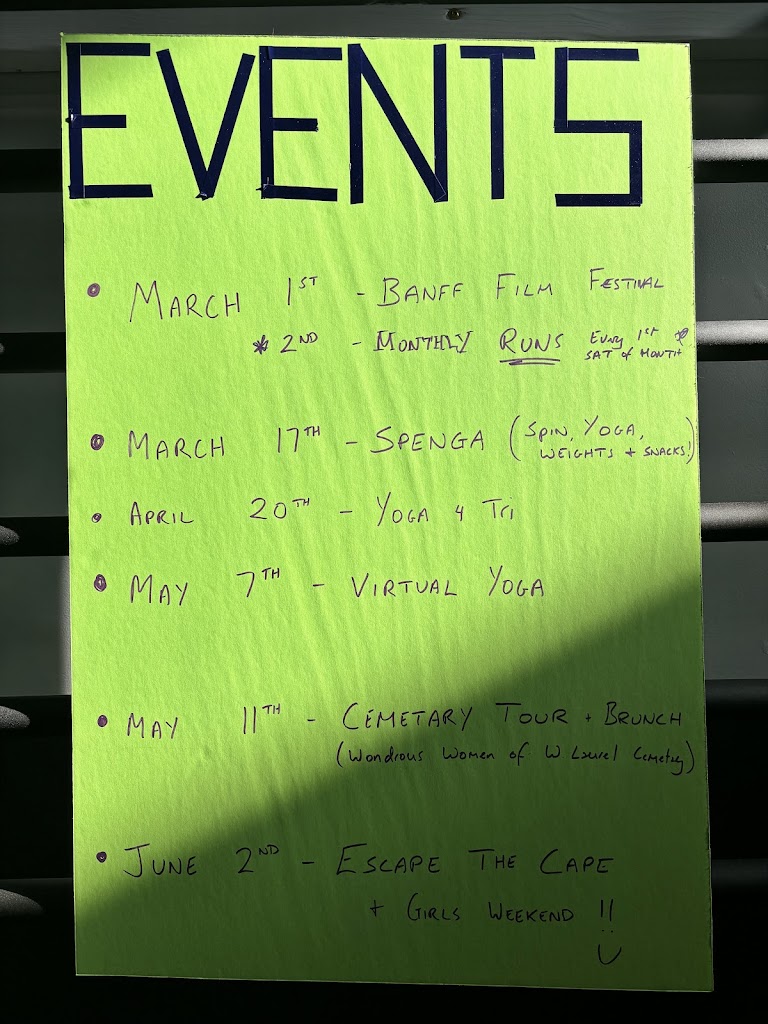 EVENTS
• MARCH 1ST - BANFF FILM FESTIVAL
* 2ND - MONTHLY RUNS Every 1st *
SAT of MONTH
• MARCH 17TH - SPENGA (SPIN, YOGA,
WEIGHTS + SNACKS!)
• APRIL 20TH - YOGA 4 Tri
• MAY 7TH - VIRTUAL YOGA
• MAY 11TH - CEMETARY TOUR + BRUNCH
(Wondrous Women of W Laurel Cemetry)
• JUNE 2ND - ESCAPE THE CAPE
+ GIRLS WEEKEND !!